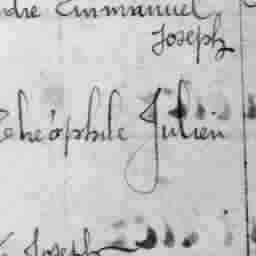 dre Emmanuel
Joseph
Théophile Julien
Joseph